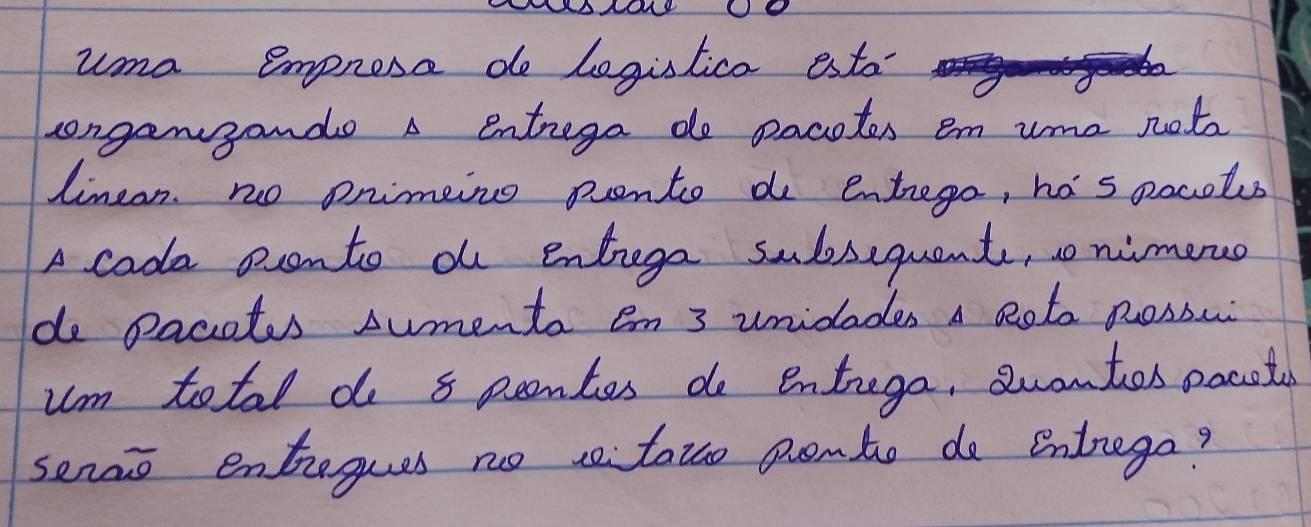 Questão 06
Uma Empresa de logistica está
organizando A Entrega de pacotes em uma rota
linear. no primeiro ponto de Entrega, há 5 pacotes
A cada ponto de Entrega subsequente, o número
de pacotes Aumenta Em 3 unidades A Rota possui
Um total de 8 pontos de Entrega. Quantos pacotes
serão entregues no oitavo ponto de Entrega?